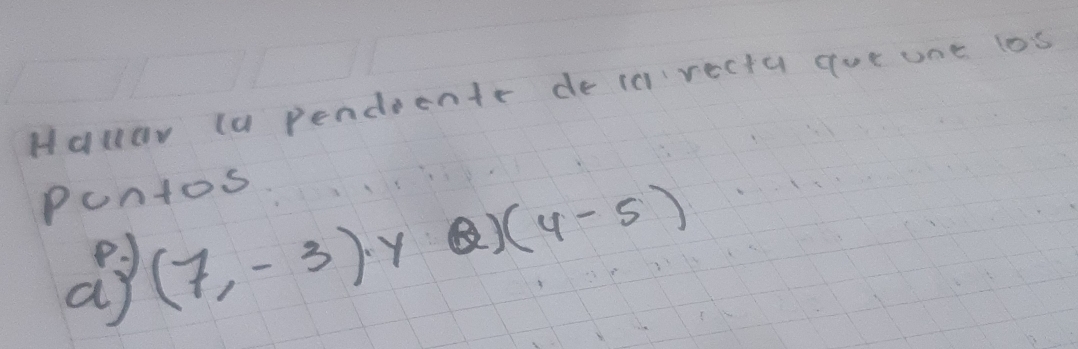 Hallar la pendiente de la recta que une los
puntos
a) P.) (7, - 3) . Y Q) (4 - 5)